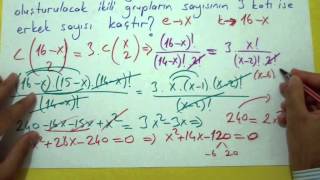 oluşturulacak ikili grupların sayısının 3 katı ise
erkek sayısı kaçtır? e→x k→16-x
C(16-x / 2) = 3.C(x / 2) ⇒ (16-x)! / (14-x)! 2! = 3. x! / (x-2)! 2!
(16-x).(15-x).(14-x)! / (14-x)! = 3 x.(x-1).(x-2)! / (x-2)!
240-16x-15x+x² = 3x²-3x ⇒ 240=2
+28x-240=0 ⇒ x²+14x-120=0
-6 20